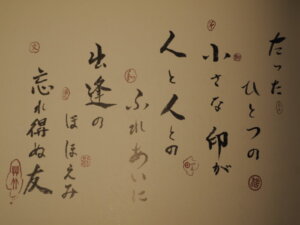 たった
ひとつの
小さな印が
人と人との
ふれあいに
出逢の
ほほえみ
忘れ得ぬ友